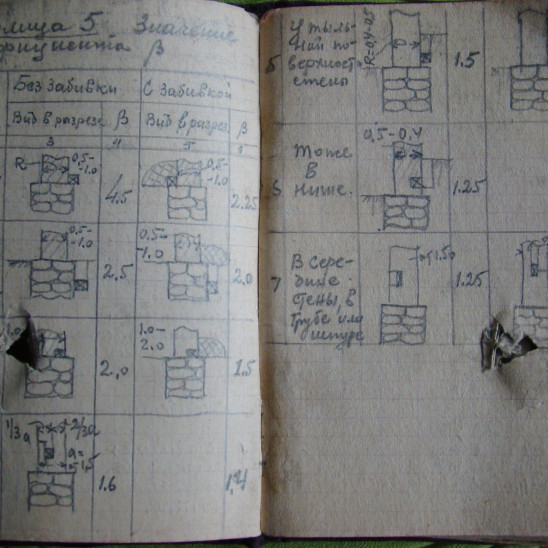 лица 5 Значение
фициента β
Без забивки С забивкой
Вид в разрезе β Вид в разрез. β
3 4 5 6
R 0,5-
-1.0
4.5
0,5-
-1.0
2.25
0,5-
-1.0
2.5
0,5-
-1.0
2.0
2.0
1.0-
2.0
1.5
1/3a 2/3a
a=
1,5
1.6
1,4
5 У тыль-
ной по-
верхност
стены
R=0,4-0,5
1.5
6 Тоже
в
нише.
0,5-0,4
1.25
7 В сере-
дине
стены, в
трубе или
штуре
1.25